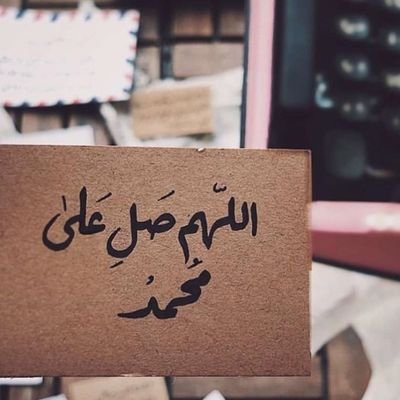 اللّهم صَلِ عَلىٰ
مُحمدْ